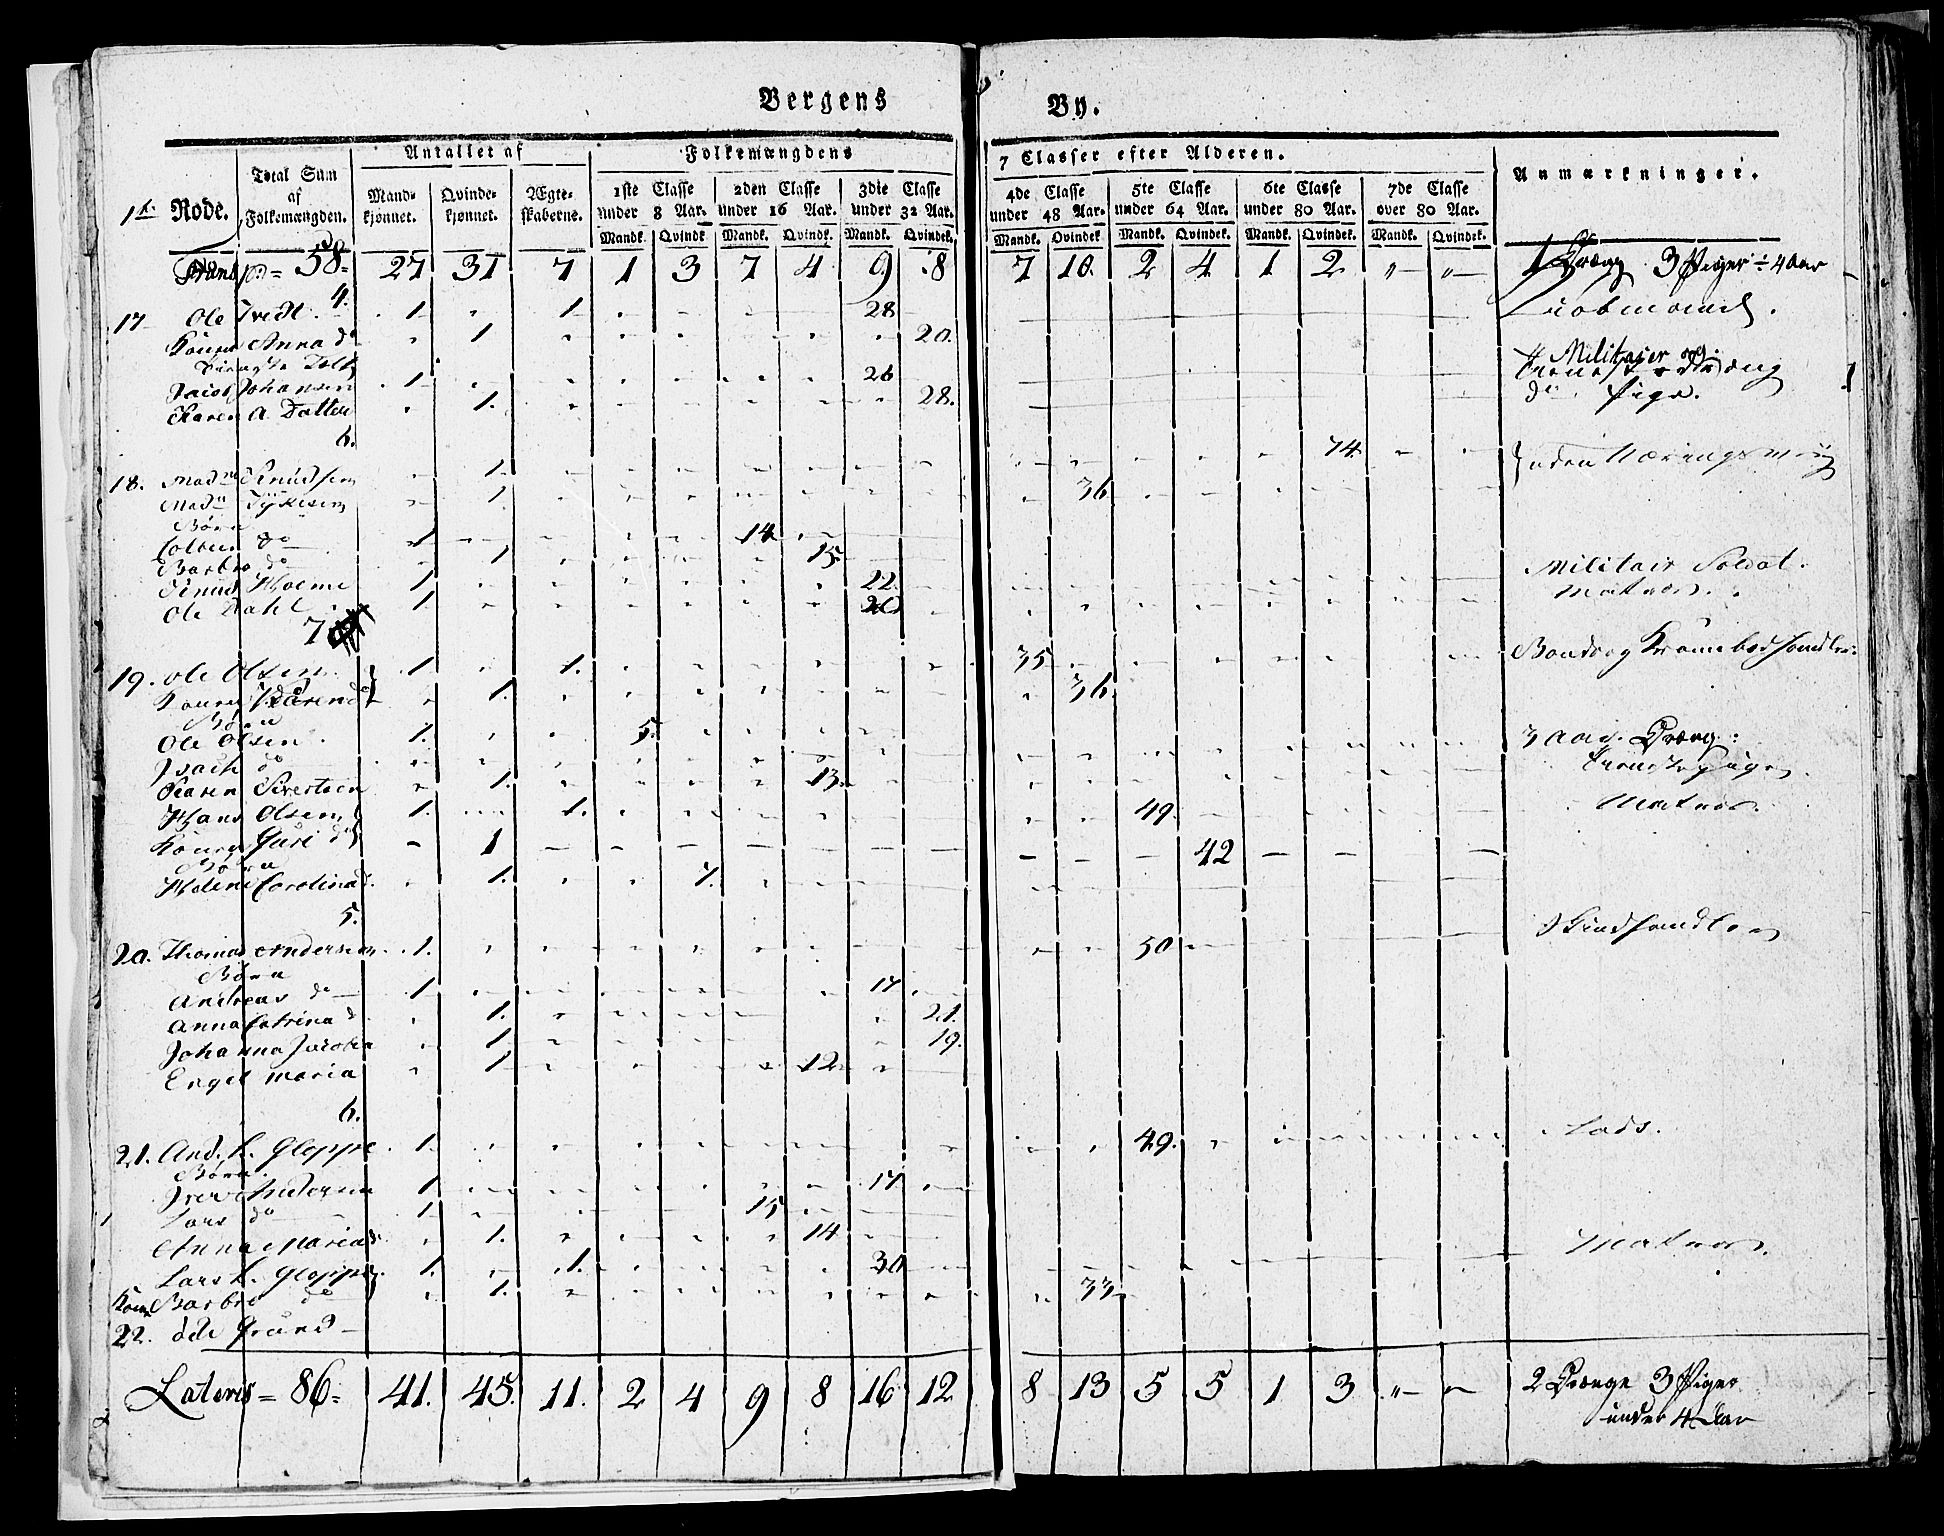 Bergens By.
1te Rode. | Total Sum af Folkemængden. | Antallet af | Folkemængdens 7 Classer efter Alderen. | Anmærkninger.
Mandkjønnet. | Qvindekjønnet. | Ægteskaberne. | 1ste Classe under 8 Aar. | 2den Classe under 16 Aar. | 3die Classe under 32 Aar. | 4de Classe under 48 Aar. | 5te Classe under 64 Aar. | 6te Classe under 80 Aar. | 7de Classe over 80 Aar.
Mandk. | Qvindk. | Mandk. | Qvindk. | Mandk. | Qvindek. | Mandk. | Qvindek. | Mandk. | Qvindek. | Mandk. | Qvindek. | Mandk. | Qvindek.
58 = 27 31 7 1 3 7 4 9 8 7 10. 2 4 1 2 „— „— 1 Dræng 3 Piger ÷ 4 Aar
4.
17 Ole Tvedt. 1. 1. 28
Anna do 1 20.
Jacob Johansen 1. 26 Militair og
Karen A. Datter 1. 28. do Pige.
6.
18. Madme Knudsen 1. 74 uden Næringsvei
Mad 1. 36
Børn
do 1 14
Barbro do 1 15.
Knud Holme 1. 22. Militair Soldat.
Ole Dahl 1. 20 Matros.
7
19. Ole Olsen 1. 1. 35 Krambodhandler.
Karen do 1. 36
Børn
Ole Olsen. 1. 5. 3 Aars Dræng.
Isach do
Karen Sivertsen 1. 13.
Hans Olsen 1. 1. 49. Matros.
Guri do 1 42
Børn
Helene Carolina d. 1. 7.
5.
20. Thomas Andersen 1. 50
Børn
Andreas do 1. 17
Anna Catrina d 1. 21.
Johanna Jacobia 1. 19.
Engel Maria 1 12.
6.
21. And. L. Gloppe 1. 49. Lods.
Børn.
Iver Andersen 1. 17
Lars do 1. 15
Anna Maria d. 1. 14
Lars L. Gloppe 1. 1. 30 Matros.
Kone Barbro do 1. 33
22. öde Grund
Lateris = 86 = 41. 45. 11. 2 4 9 8 16 12 8 13 5 5 1 3 „— „— 2 Drænge 3 Piger
under 4 Aar